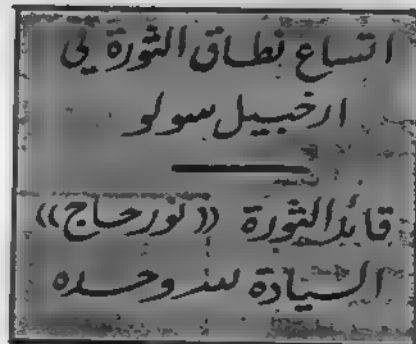 اتساع نطاق الثورة في
ارخبيل سولو
قائد الثورة ((نورحاج))
السيادة لله وحده